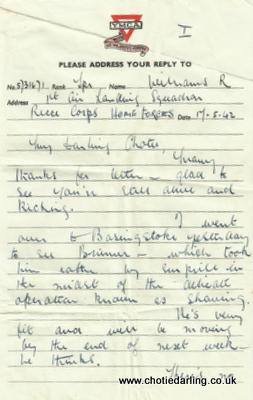 I
YMCA
PLEASE ADDRESS YOUR REPLY TO
No. 5731671 Rank Tpr Name Williams R
Address 1st Air Landing Squadron
Recce Corps HOME FORCES Date 17.5.42
My Darling Chotie,
Many
thanks for letter – glad to
see you're still alive and
kicking.
I went
over to Basingstoke yesterday
to see Brinner – which took
him rather by surprise in
the midst of the delicate
operation known as shaving.
He's very
fit and will be moving
by the end of next week –
he thinks.
There's no
www.chotiedarling.co.uk